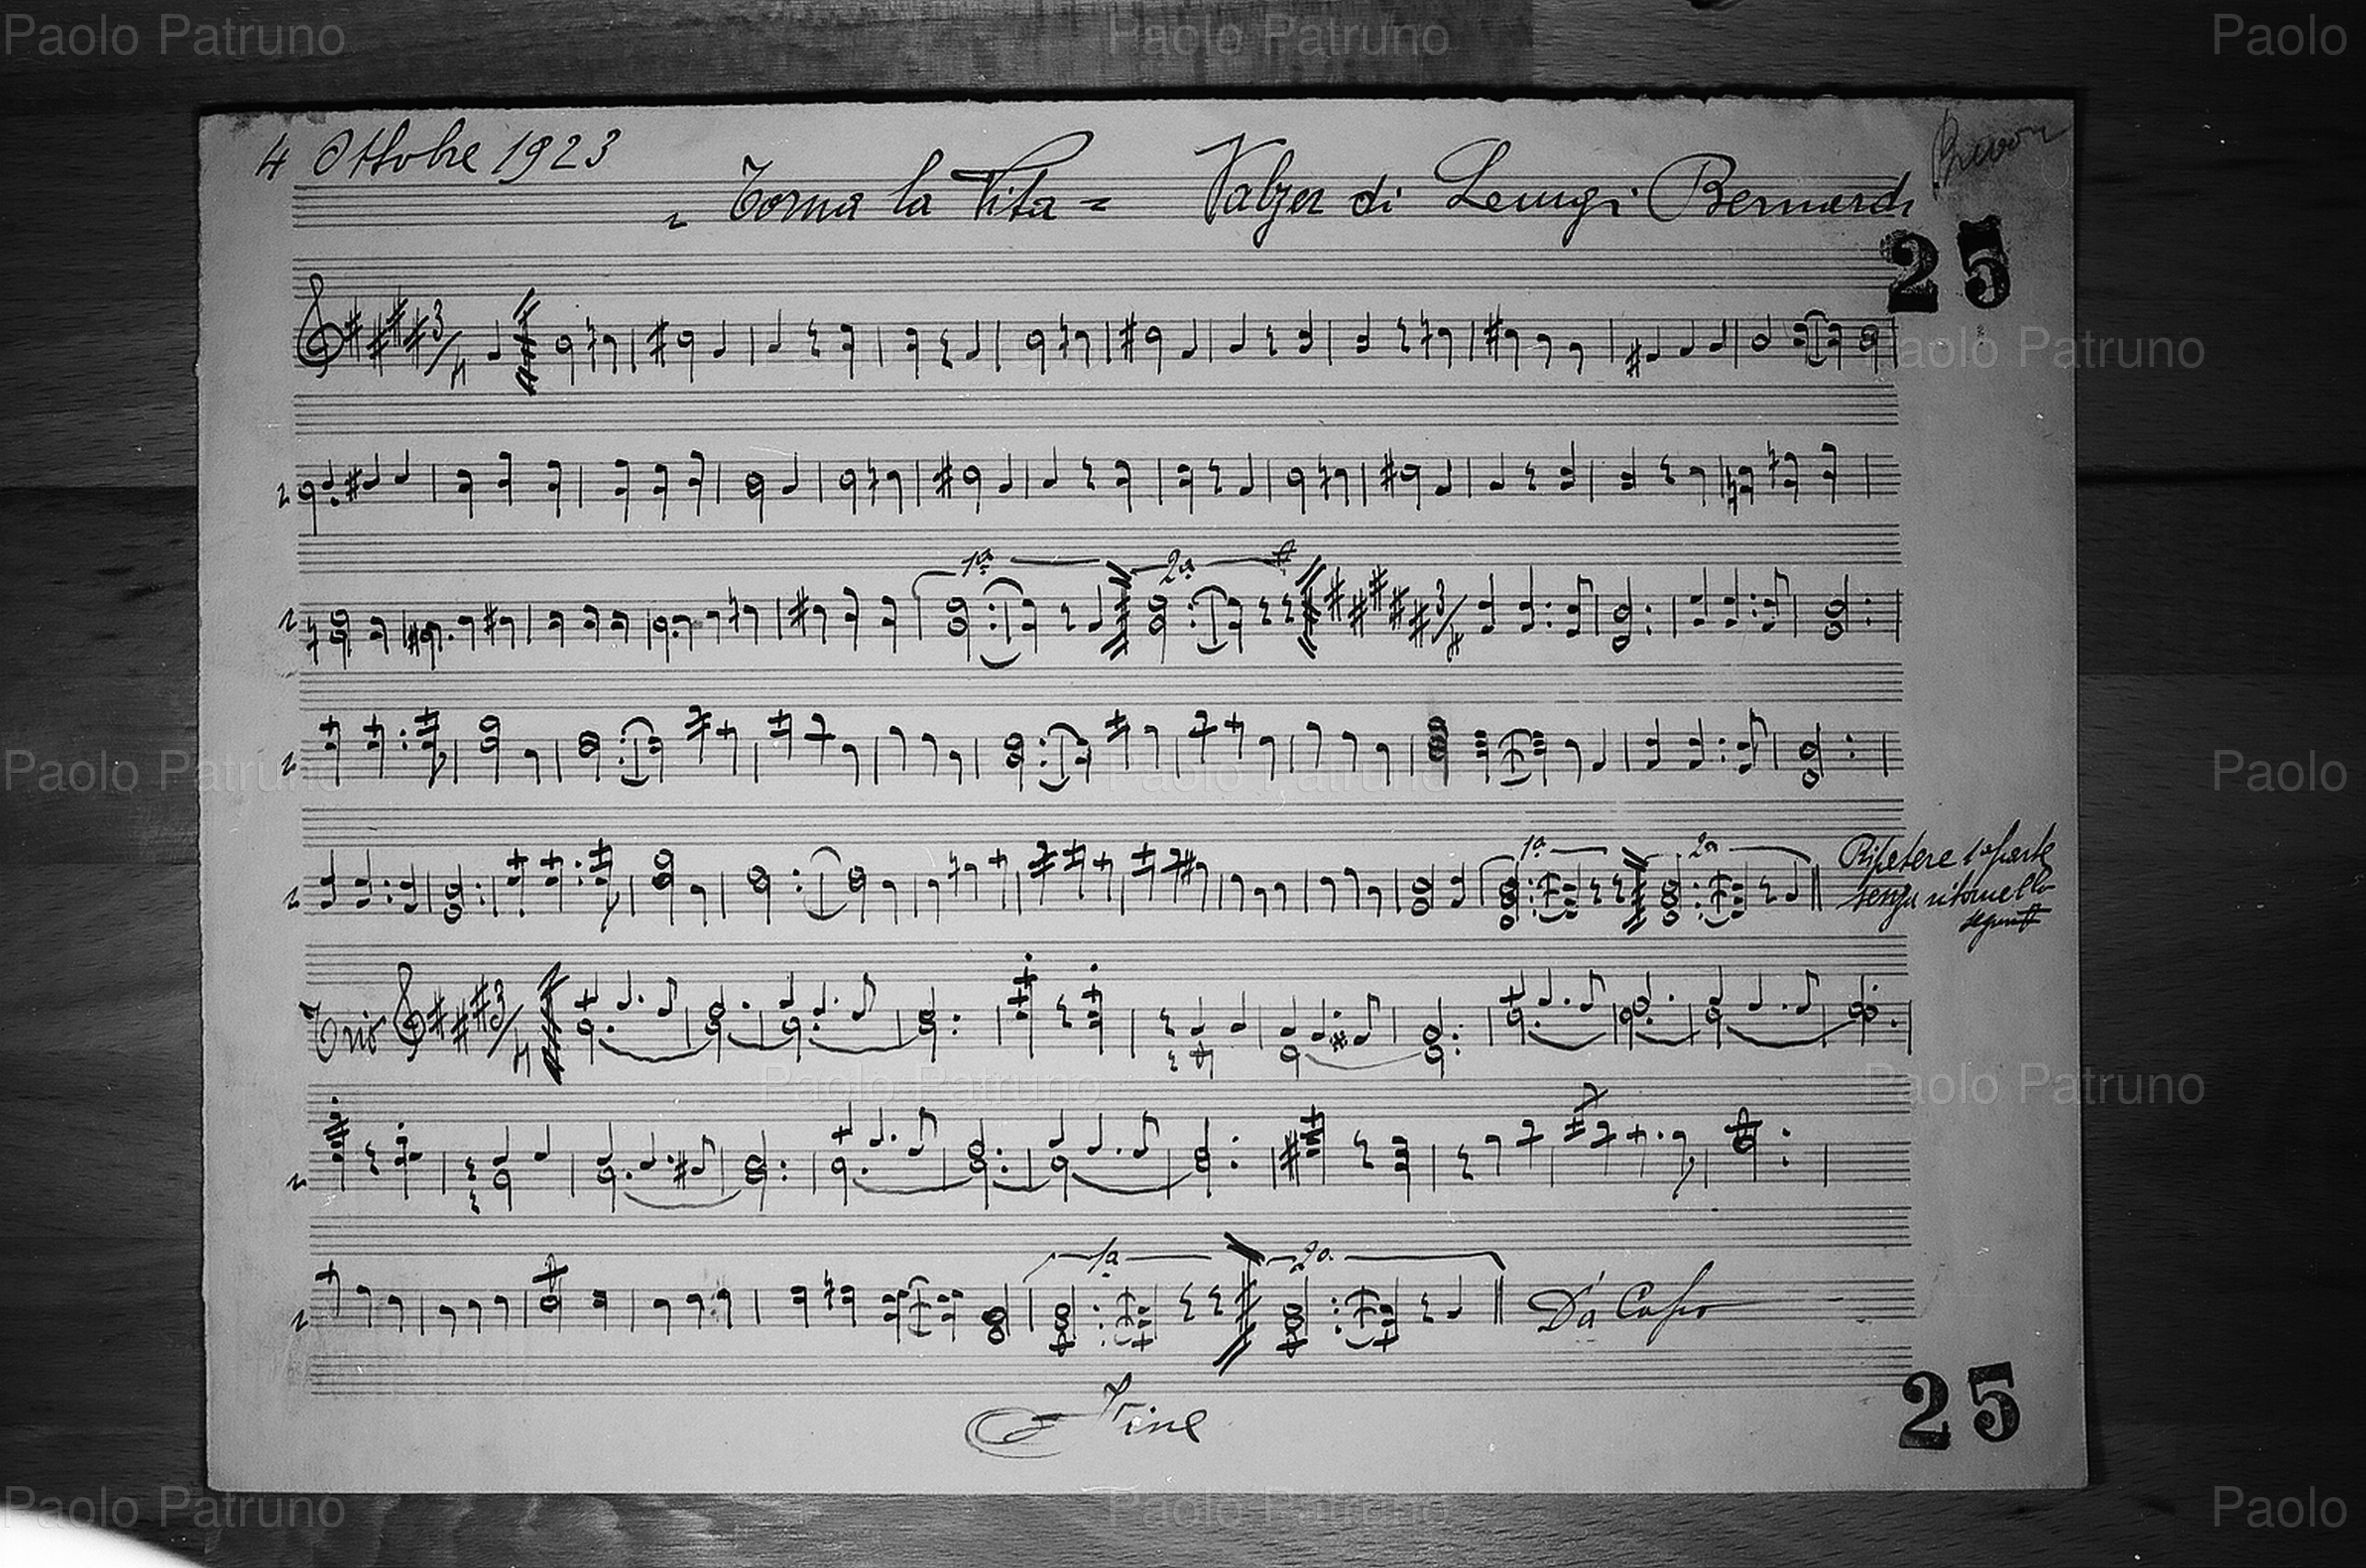 Paolo Patruno Paolo Patruno Paolo
4 Ottobre 1923
„ Torna la Vita = Valzer di Luigi Bernardi
25
3/4
Paolo Patruno Paolo Patruno
1a 2a
3/4
Paolo Patruno Paolo Patruno Paolo
1a 2a Ripetere 1a parte
senza ritornello
Trio 3/4
Paolo Patruno Paolo Patruno
1a 2a Da Capo
Fine
25
Paolo Patruno Paolo Patruno Paolo